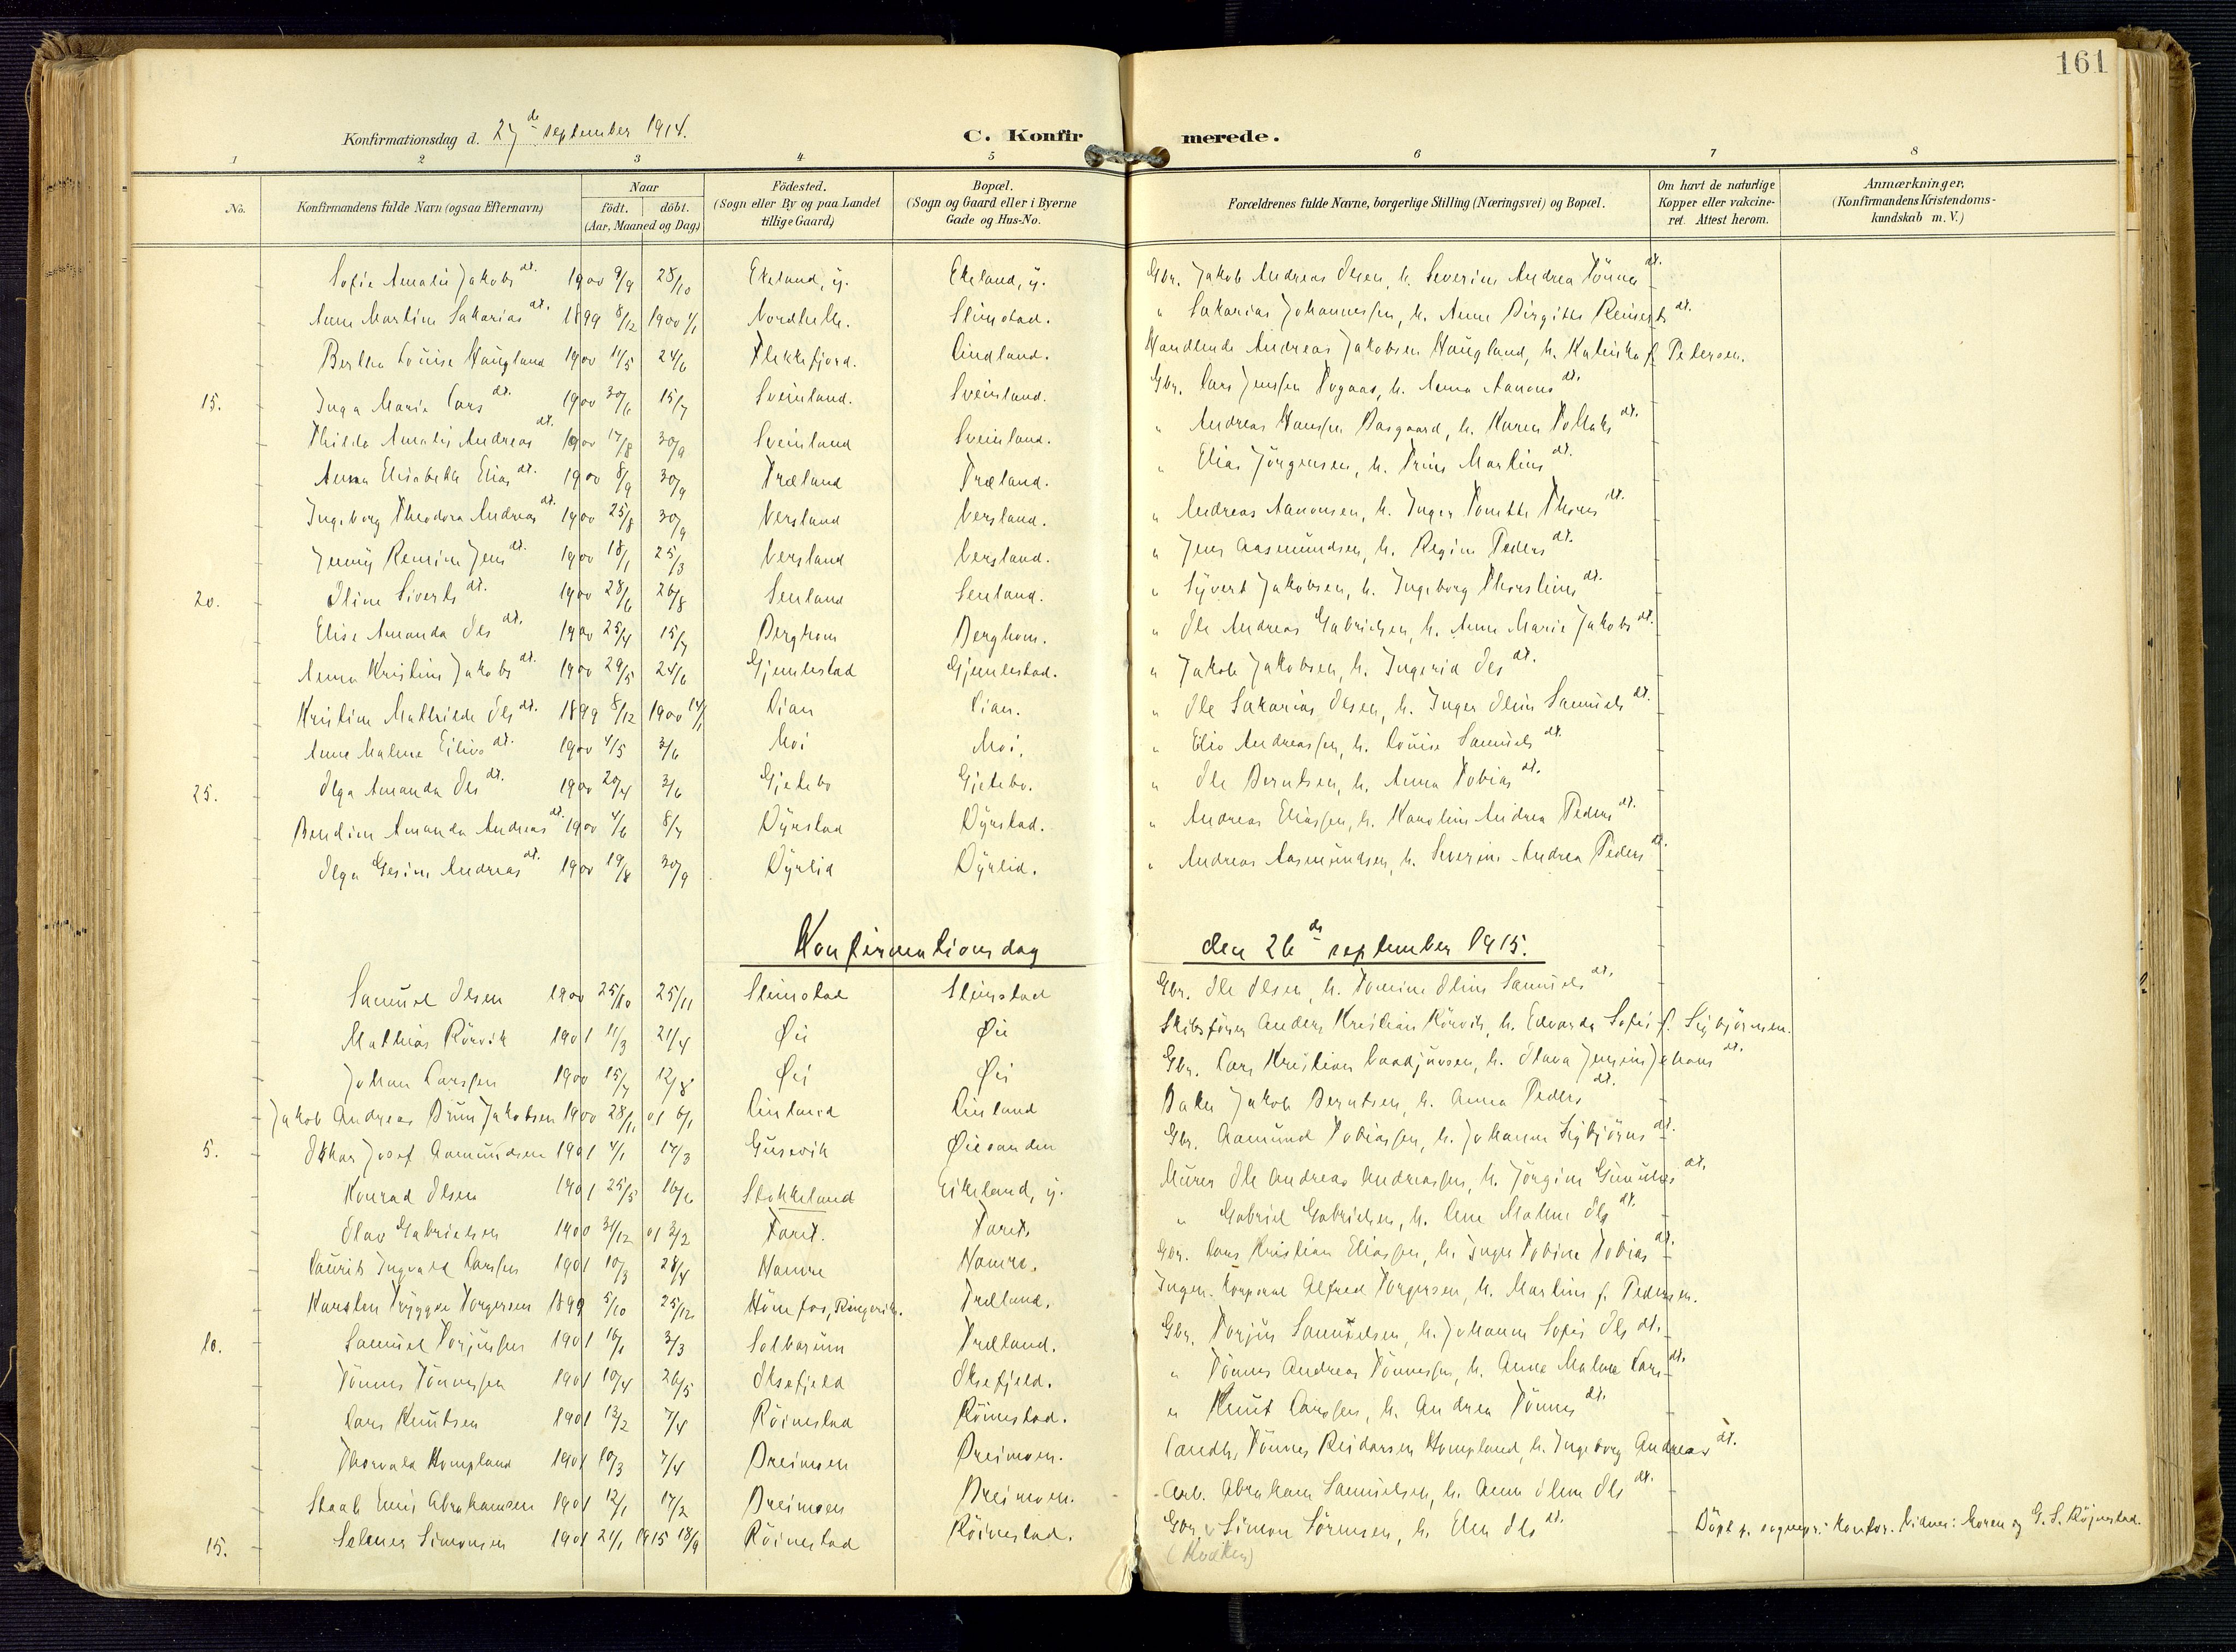 161
Konfirmationsdag d. 27de september 1914. C. Konfirmerede.
1 2 3 4 5 6 7 8
No. Konfirmandens fulde Navn (ogsaa Efternavn) Naar födt. döbt. (Aar, Maaned og Dag) Födested. (Sogn eller By og paa Landet tillige Gaard) Bopæl. (Sogn og Gaard eller i Byerne Gade og Hus-No. Forældrenes fulde Navne, borgerlige Stilling (Næringsvei) og Bopæl. Om havt de naturlige Kopper eller vakcineret. Attest herom. Anmærkninger, (Konfirmandens Kristendomskundskab m. V.)
Sofie Amalie Jakobsdt. 1900 9/9 28/10 Ekeland, y. Ekeland, y. Gbr. Jakob Andreas Olsen, h. Severine Andrea Tönnesdt.
Anne Martine Sakariasdt. 1899 8/12 1900 1/1 Sleimstad. " Sakarias Johannessen, h. Anne Birgitte Reiersdt.
Bertha Louise Haugland 1900 11/5 24/6 Flekkefjord. Lindland. Handlende Andreas Jakobsen Haugland, h. f. Petersen.
15. Inga Marie Larsdt. 1900 30/6 15/7 Sveinland. Sveinland. Gbr. Lars Jenssen h. Anna Aanonsdt.
Thilda Amalie Andreasdt. 1900 17/8 30/9 Sveinland Sveinland. " Andreas Hanssen h. Karen
Anna Elisabeth Eliasdt. 1900 8/9 30/9 Træland Træland. " Elias Jörgensen, h. Trine Martinsdt.
Ingeborg Theodora Andreasdt. 1900 25/8 30/9 Versland Versland. " Andreas Aanonsen, h. Inger Tomette Thorsdt.
Jenny Remine Jensdt. 1900 18/1 25/3 Versland Versland. " Jens Aasmundsen, h. Regine Pedersdt.
20. Oline Sivertsdt. 1900 28/6 26/8 Senland Senland. " Syvert Jakobsen, h. Ingeborg Thorstinedt.
Elise Amanda Olsdt. 1900 25/4 15/7 Berghom Berghom. " Ole Andreas Gabrielsen, h. Anne Marie Jakobsdt.
Anna Kristine Jakobsdt. 1900 29/5 24/6 Gjemlestad Gjemlestad. " Jakob Jakobsen, h. Ingerid Olsdt.
Kristine Mathilde Olsdt. 1899 8/12 1900 14/1 Lian Lian. " Ole Sakarias Olsen, h. Inger Oline Samuelsdt.
Anne Malene Eilivsdt. 1900 4/5 3/6 Moi Moi. " Eiliv Andreassen, h. Louise Samuelsdt.
25. Olga Amanda Olsdt. 1900 20/4 3/6 Gjetebo Gjetebo. " Ole Berntsen, h. Anna Tobiasdt.
Bendine Amanda Andreasdt. 1900 4/6 8/7 Dyrstad Dyrstad. " Andreas Eliassen, h. Karoline Andrea Pedersdt.
Olga Gesine Andreasdt. 1900 19/8 30/9 Dyrlid Dyrlid. " Andreas Aasmundsen, h. Severine Andrea Pedersdt.
Konfirmationsdag den 26de september 1915.
Samuel Olsen 1900 25/10 25/11 Sleimstad Sleimstad Gbr. Ole Olsen, h. Tomine Oline Samuelsdt.
Mathias Rörvik 1901 11/3 21/4 Øie Øie Skibsförer Anders Kristian Rörvik, h. Edvarda Sofie f. Sigbjörnsen.
Johan Larssen 1900 15/7 12/8 Øie Øie Gbr. Lars Kristian h. Olava Johansdt.
Jakob Andreas Brun Jakobsen 1900 28/11 01 6/1 Linland Linland Baker Jakob Berntsen, h. Anna Pedersdt.
5. Oskar Josef Aamundsen 1901 4/1 17/3 Gusevik Øiesanden Gbr. Aamund Tobiassen, h. Johanne Sigbjörnsdt.
Konrad Olsen 1901 25/5 16/6 Stokkeland Eikeland, y. Murer Ole Andreas Andreassen, h. Jörgine Gunuldsdt.
Olav Gabrielsen 1900 31/12 01 3/2 Faret. Faret. " Gabriel Gabrielsen, h. Ane Malene Olsdt.
Laurits Ingvald Larssen 1901 10/3 28/4 Hamre Hamre. Gbr. Lars Kristian Eliassen, h. Inger Tobine Tobiasdt.
Karsten Trygve Torgersen 1899 5/10 25/12 Hönefos, Ringerike. Træland. Ingen. korporal Alfred Torgersen, h. Martine f. Pedersen.
10. Samuel Torjussen 1901 16/1 3/3 Solbarum Træland. Gbr. Torjus Samuelsen, h. Johanne Sofie Olsdt.
Tönnes Tönnessen 1901 10/4 26/5 Oksefjeld Oksefjeld. " Tönnes Andreas Tönnessen, h. Anne Malene Larsdt.
Lars Knutsen 1901 13/2 7/4 Röinestad Röinestad. " Knut Larssen, h. Andrea Tönnesdt.
Thorvald Hompland 1901 10/3 7/4 Dreimoen Dreimoen. Landh. Tönnes Reidarsen Hompland, h. Ingeborg Andreasdt.
Emil Abrahamsen 1901 12/1 17/2 Dreimoen Dreimoen. Arb. Abraham Samuelsen, h. Anna Oline Olsdt.
15. Selmer Simonsen 1901 21/1 1915 18/9 Röinestad Röinestad. Gbr. Simon Sörensen, h. Elen Olsdt. Döpt p. sognepr. kontor. Vidner: Moren og G. S. Röjnestad.